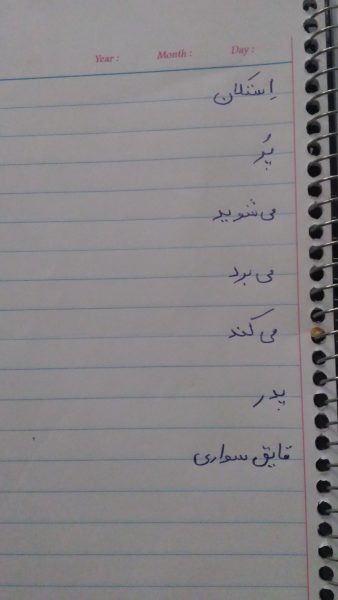 Year : Month : Day :
اِستکان
پُر
می شوید
می برد
می کند
پدر
قایق سواری